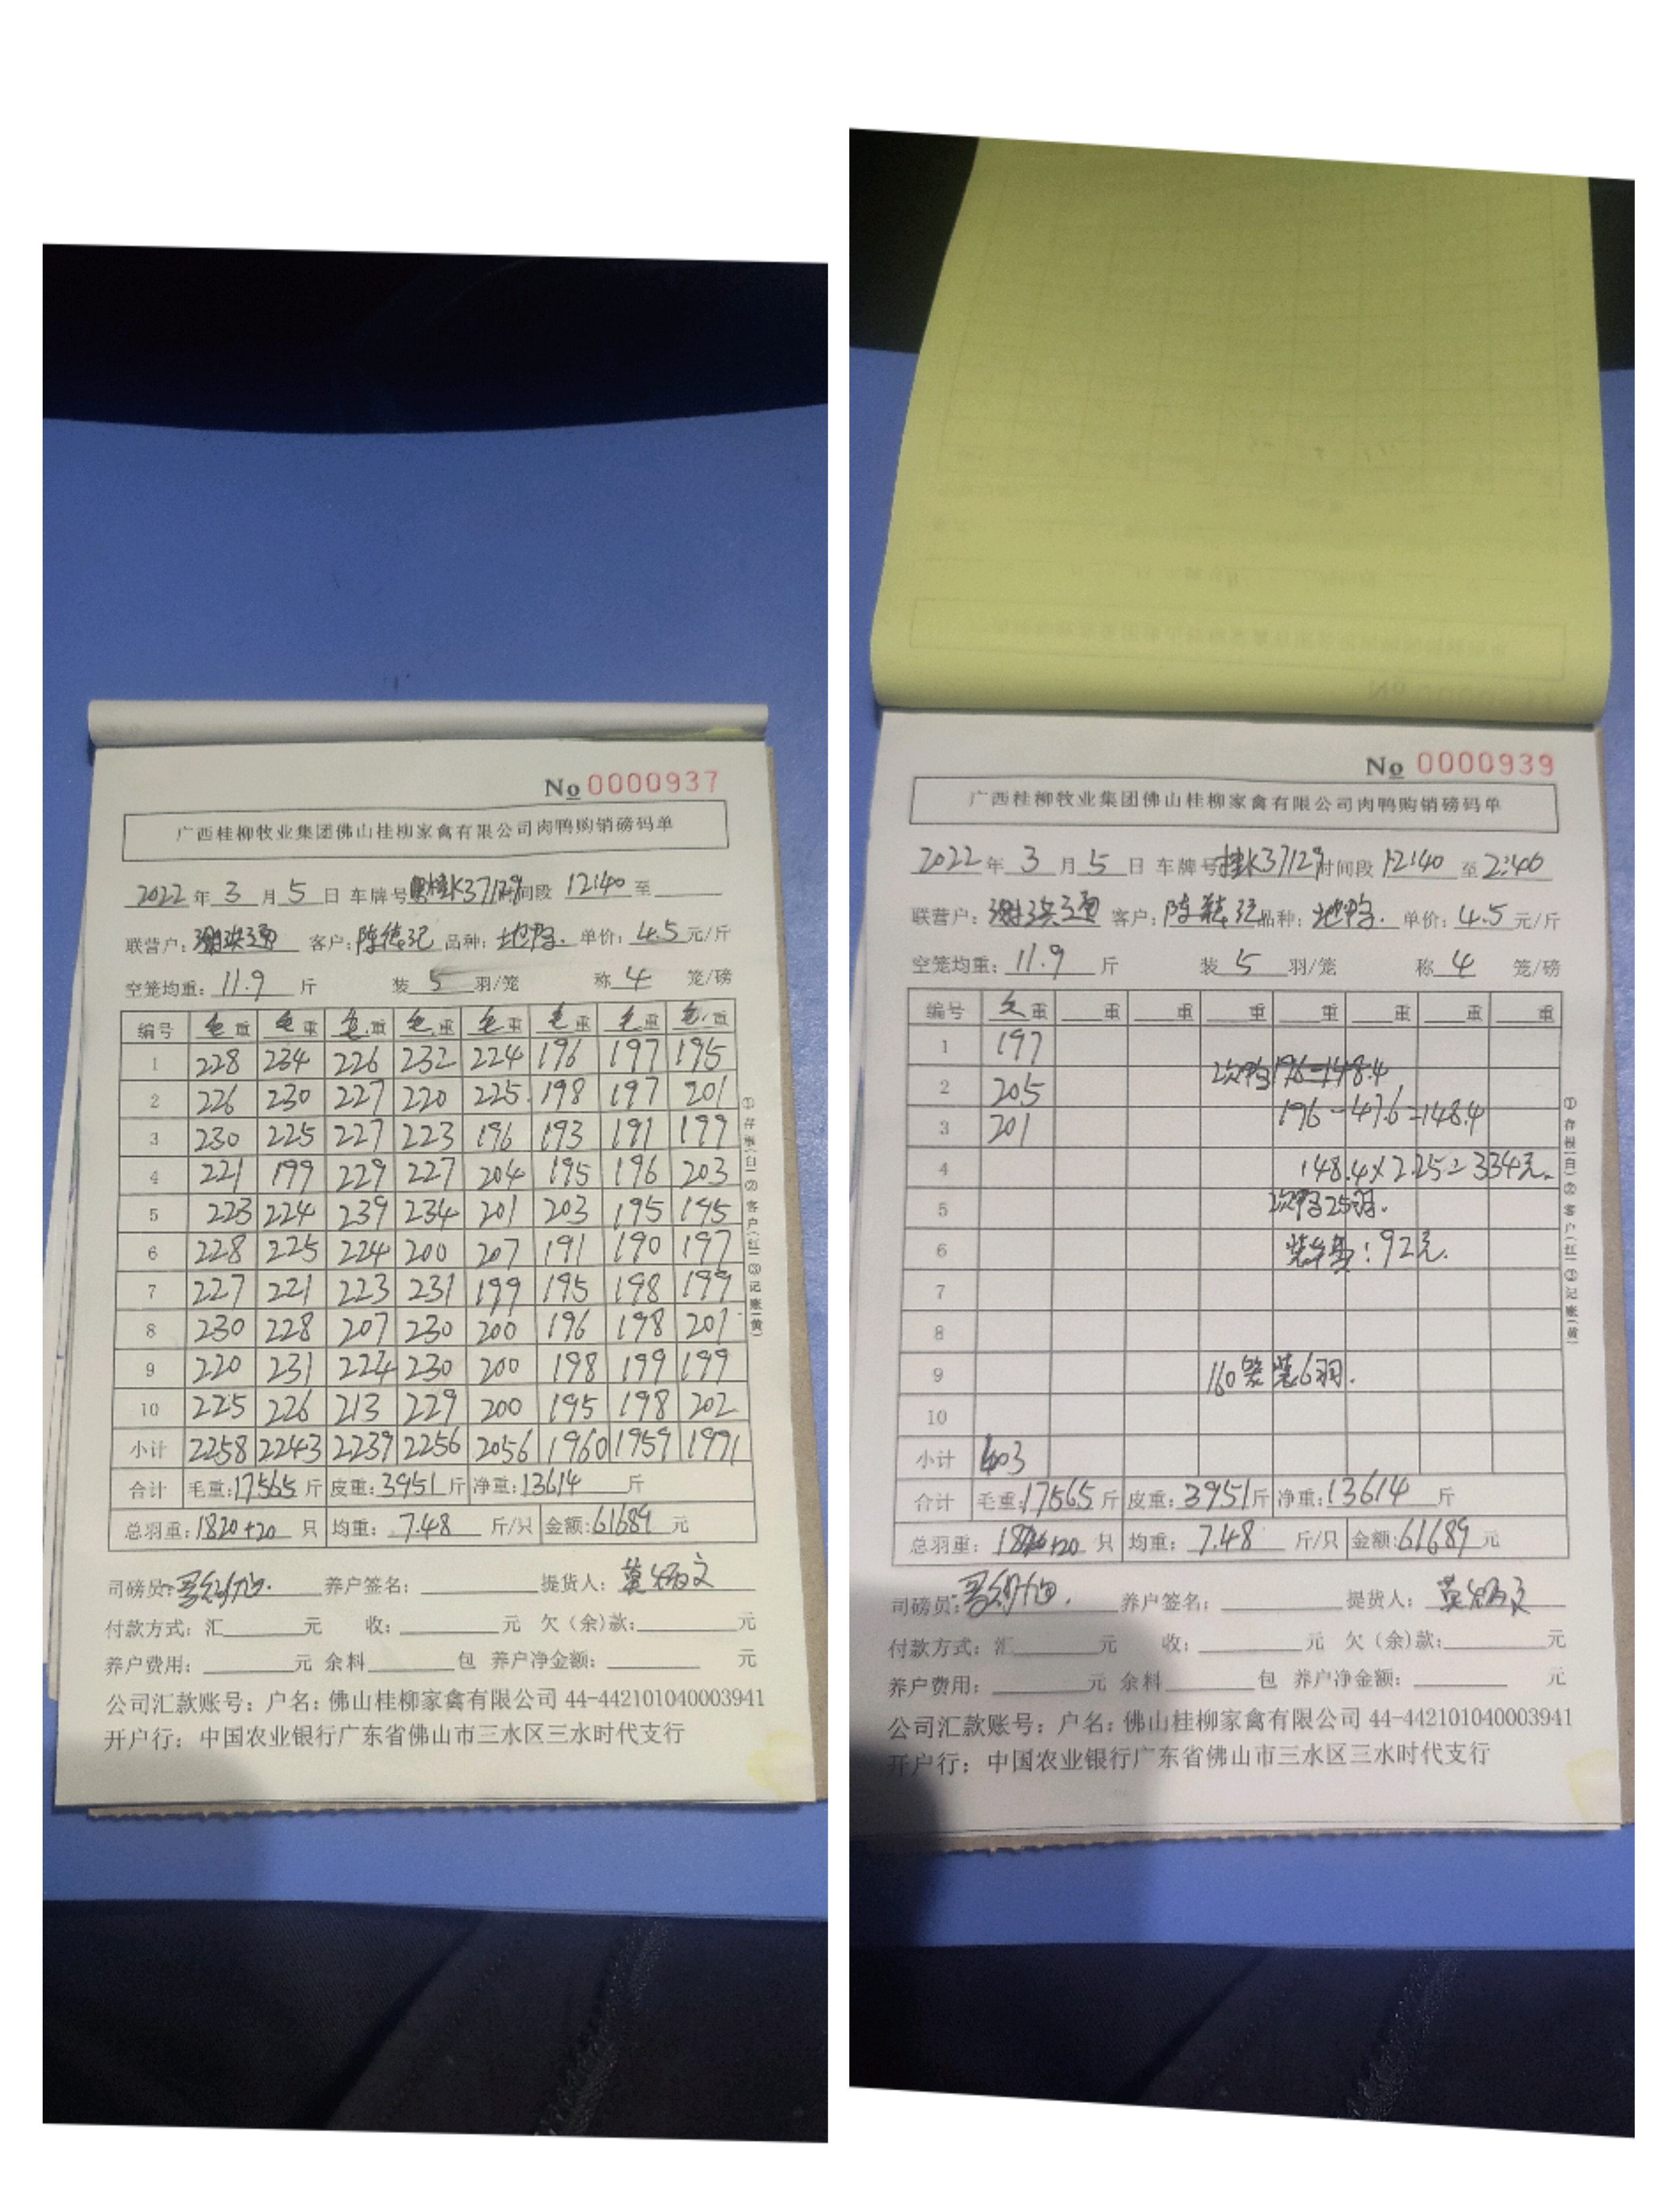 No 0000937
广西桂柳牧业集团佛山桂柳家禽有限公司肉鸭购销磅码单
2022 年 3 月 5 日 车牌号 桂K37129 时间段 12:40 至
联营户: 客户: 陈德记 品种: 土鸭. 单价: 4.5 元/斤
空笼均重: 11.9 斤 装 5 羽/笼 称 4 笼/磅
编号 毛重 毛重 毛重 毛重 毛重 毛重 毛重 毛重
1 228 234 226 232 224 196 197 195
2 226 230 227 220 225 198 197 201
3 230 225 227 223 196 193 191 199
4 221 199 229 227 204 195 196 203
5 223 224 239 234 201 203 195 195
6 228 225 224 200 207 191 190 197
7 227 221 223 231 199 195 198 199
8 230 228 207 230 200 196 198 201
9 220 231 224 230 200 198 199 199
10 225 226 213 229 200 195 198 202
小计 2258 2243 2239 2256 2056 1960 1959 1991
合计 毛重: 17565 斤 皮重: 3951 斤 净重: 13614 斤
总羽重: 1820+20 只 均重: 7.48 斤/只 金额: 61689 元
司磅员: 养户签名: 提货人: 莫炳文
付款方式: 汇 元 收: 元 欠(余)款: 元
养户费用: 元 余料 包 养户净金额: 元
公司汇款账号: 户名: 佛山桂柳家禽有限公司 44-442101040003941
开户行: 中国农业银行广东省佛山市三水区三水时代支行
①存根(白)②客户(红)③记账(黄)
No 0000939
广西桂柳牧业集团佛山桂柳家禽有限公司肉鸭购销磅码单
2022 年 3 月 5 日 车牌号 桂K37129 时间段 12:40 至 2:40
联营户: 客户: 陈德记 品种: 土鸭. 单价: 4.5 元/斤
空笼均重: 11.9 斤 装 5 羽/笼 称 4 笼/磅
编号 毛重 重 重 重 重 重 重 重
1 197
次鸭 196-148.4
2 205
196-47.6=148.4
3 201
4 148.4×2.25=334元.
5 次鸭25羽.
6 装车费: 92元.
7
8
9 160笼装6羽.
10
小计 603
合计 毛重: 17565 斤 皮重: 3951 斤 净重: 13614 斤
总羽重: 1820+20 只 均重: 7.48 斤/只 金额: 61689 元
司磅员: 养户签名: 提货人: 莫炳文
付款方式: 汇 元 收: 元 欠(余)款: 元
养户费用: 元 余料 包 养户净金额: 元
公司汇款账号: 户名: 佛山桂柳家禽有限公司 44-442101040003941
开户行: 中国农业银行广东省佛山市三水区三水时代支行
①存根(白)②客户(红)③记账(黄)